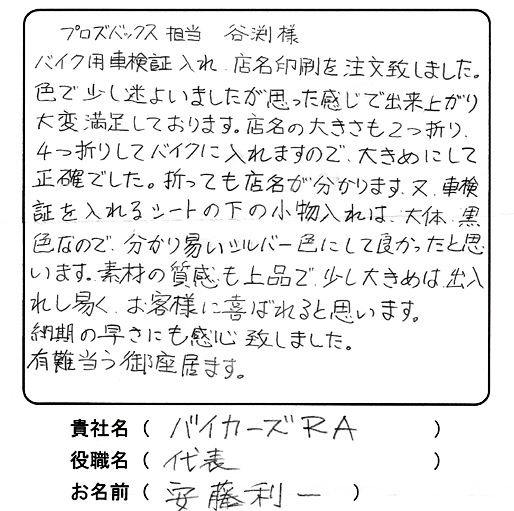 プロズバックス 担当 谷渕様
バイク用車検証入れ、店名印刷を注文致しました。
色で少し迷よいましたが思った感じで出来上がり
大変満足しております。店名の大きさも2つ折り、
4つ折りしてバイクに入れますので、大きめにして
正確でした。折っても店名が分かります、又、車検
証を入れるシートの下の小物入れは、大体、黒
色なので、分かり易いシルバー色にして良かったと思
います。素材の質感も上品で、少し大きめは、出入
れし易く、お客様に喜ばれると思います。
納期の早さにも感心致しました。
有難当う御座居ます。
貴社名 ( バイカーズRA )
役職名 ( 代表 )
お名前 ( 安藤利一 )